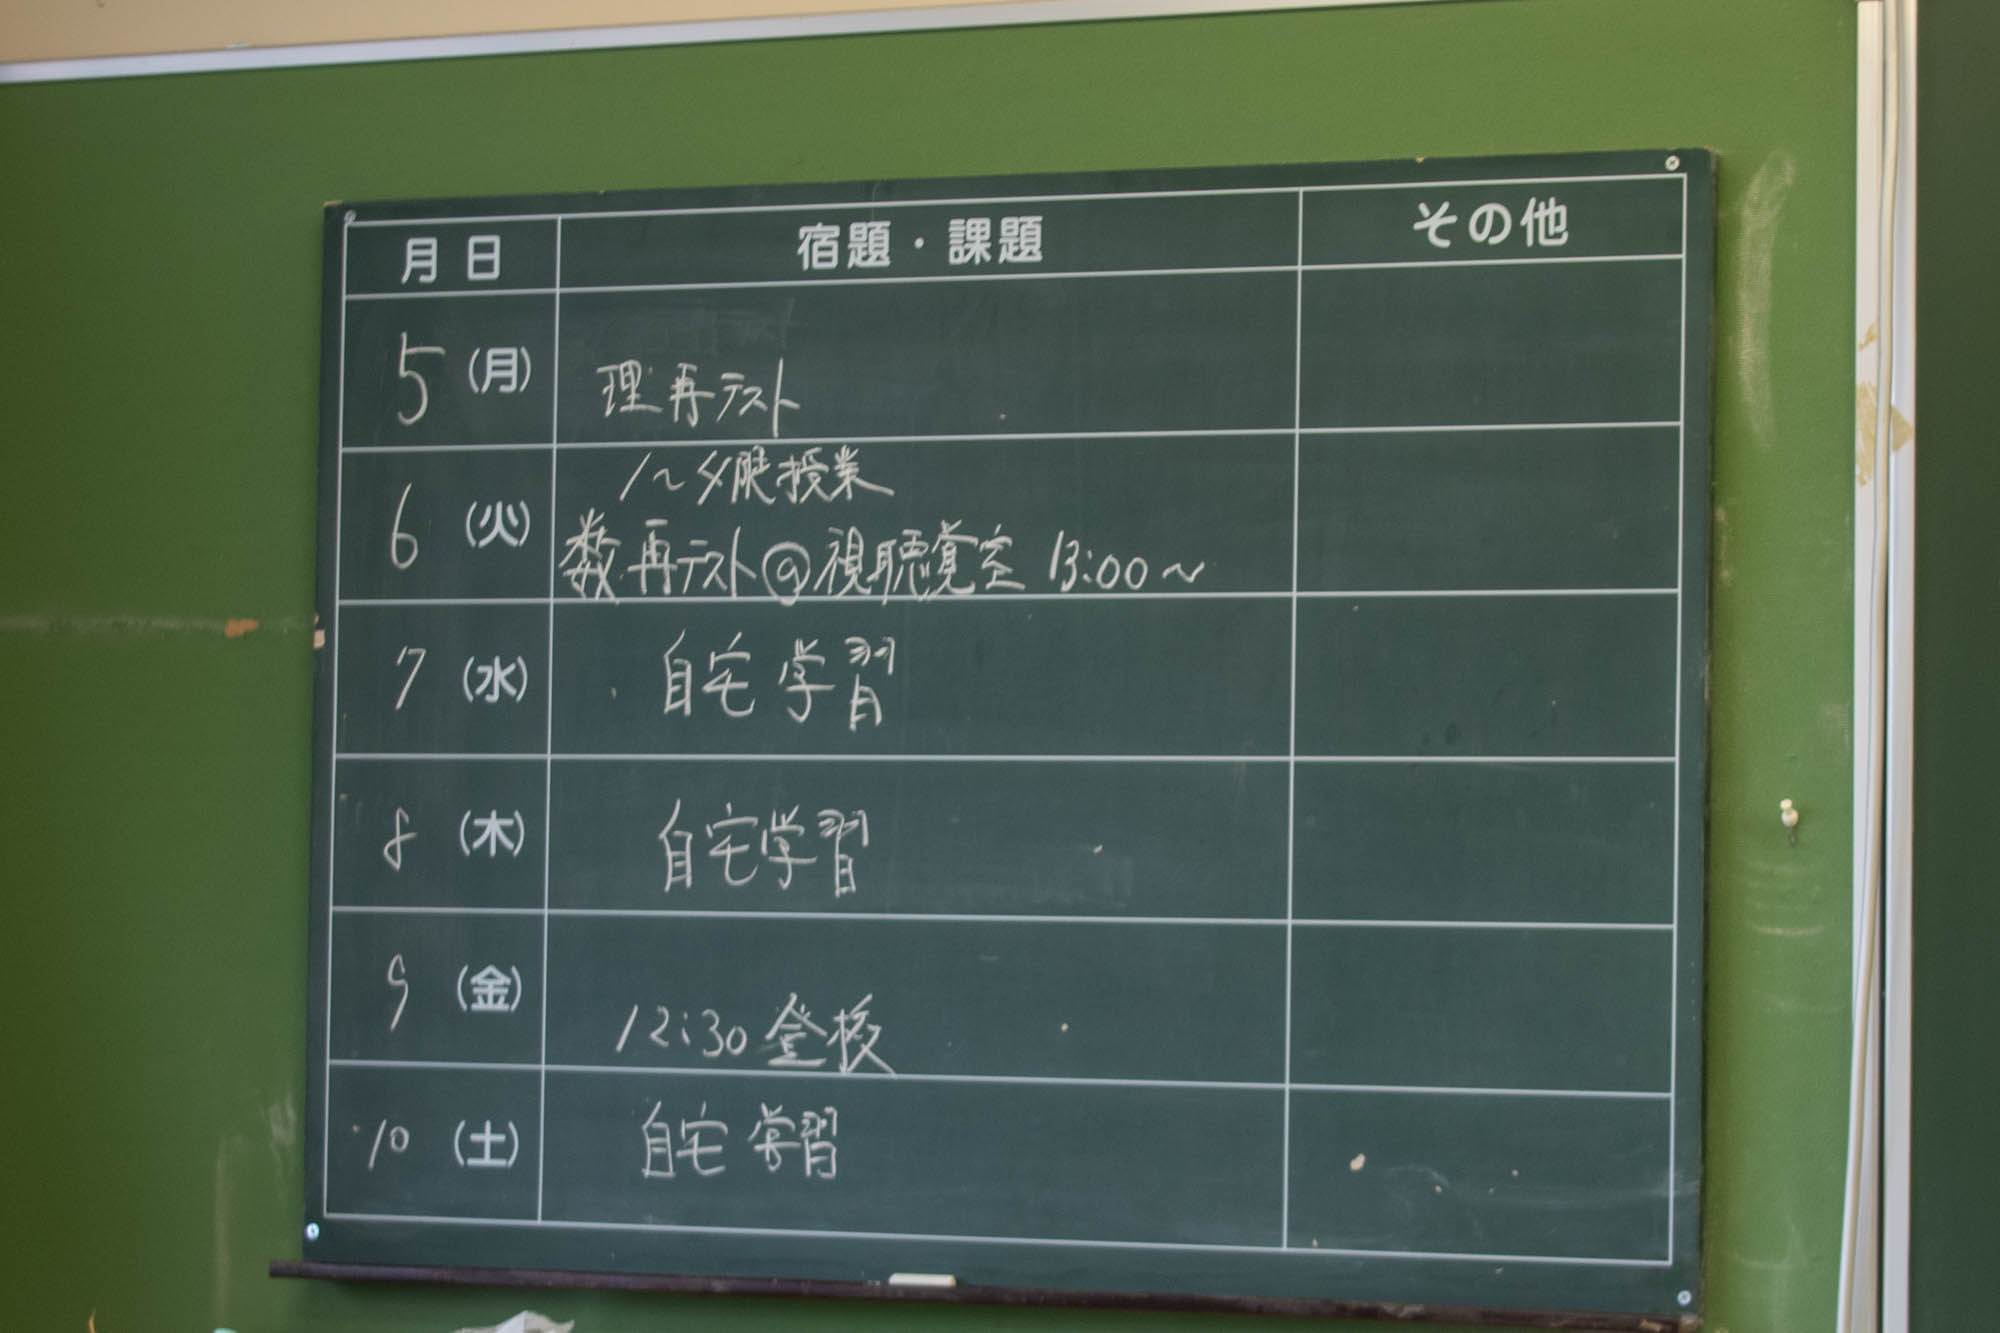 月 日 宿題・課題 その他
5 (月) 理再テスト
6 (火) 1〜4限授業
数再テスト@視聴覚室 13:00〜
7 (水) 自宅学習
8 (木) 自宅学習
9 (金) 12:30 登校
10 (土) 自宅学習